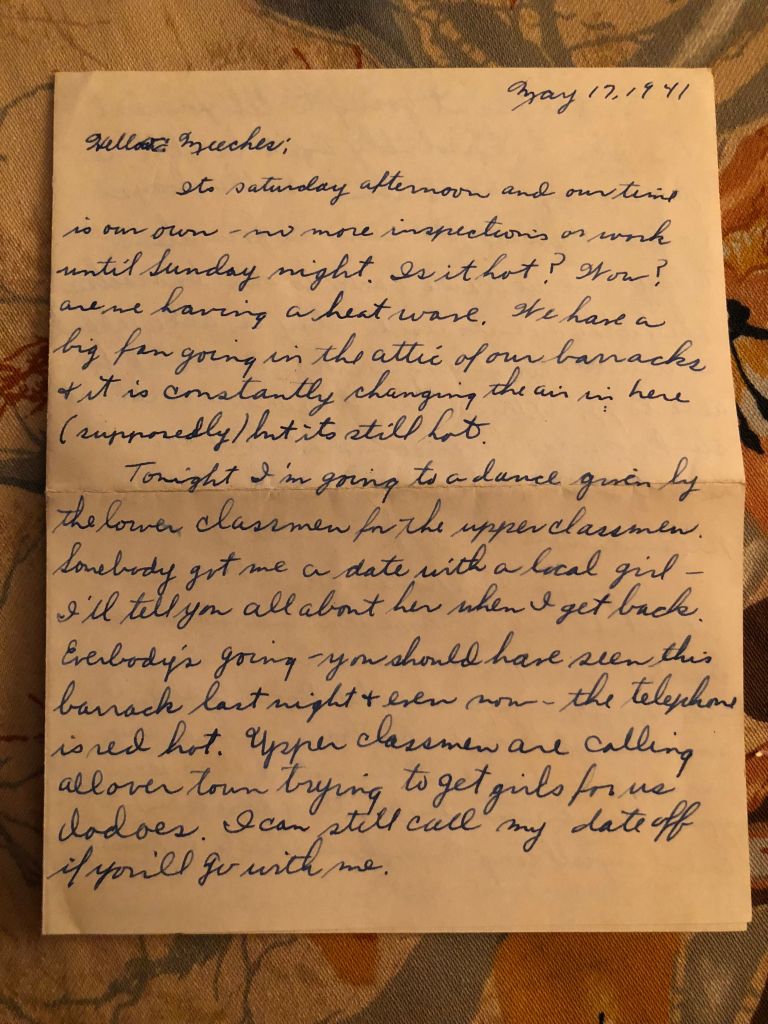 May 17, 1941
Hello Meeches;
Its saturday afternoon and our time
is our own - no more inspections or work
until Sunday night. Is it hot? Wow?
are we having a heat wave. We have a
big fan going in the attic of our barracks
& it is constantly changing the air in here
(supposedly) but its still hot.
Tonight I'm going to a dance given by
the lower classmen for the upperclassmen.
Somebody got me a date with a local girl -
I'll tell you all about her when I get back.
Everbody's going - you should have seen this
barrack last night & even now - the telephone
is red hot. Upper classmen are calling
all over town trying to get girls for us
dodoes. I can still call my date off
if you'll go with me.